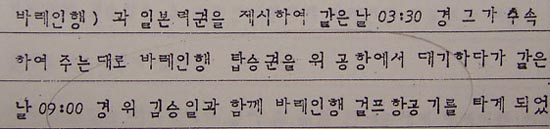 바레인행) 과 일본려권을 제시하여 같은날 03:30 경 그가 수속
하여 주는대로 바레인행 탑승권을 위 공항에서 대기하다가 같은
날 09:00 경 위 김승일과 함께 바레인행 걸프항공기를 타게 되었